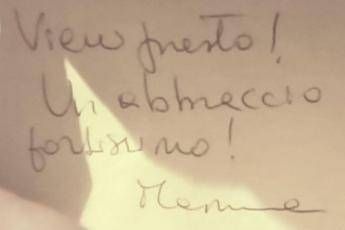 Vieni presto!
Un abbraccio
fortissimo!
Mamma